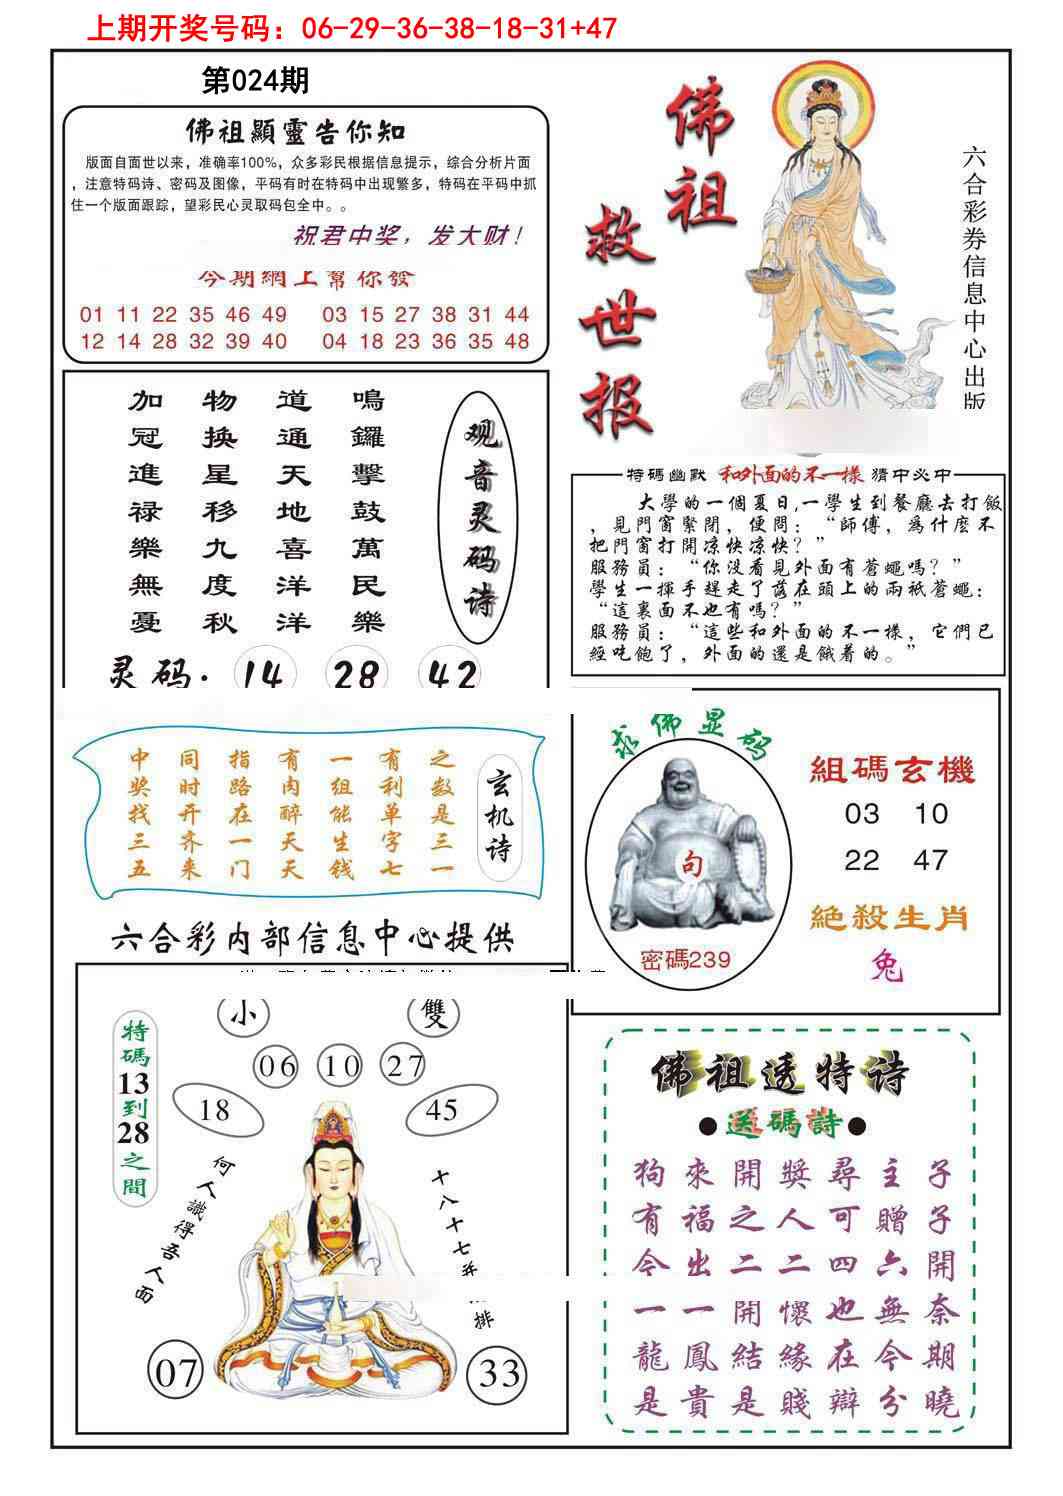 上期开奖号码：06-29-36-38-18-31+47
第024期
佛祖顯靈告你知
版面自面世以来，准确率100%，众多彩民根据信息提示，综合分析片面
，注意特码诗、密码及图像，平码有时在特码中出现繁多，特码在平码中抓
住一个版面跟踪，望彩民心灵取码包全中。。
祝君中奖，发大财！
今期網上幫你發
01 11 22 35 46 49 03 15 27 38 31 44
12 14 28 32 39 40 04 18 23 36 35 48
佛祖
救世报
六合彩券信息中心出版
加冠進禄樂無憂
物换星移九度秋
道通天地喜洋洋
鳴鑼擊鼓萬民樂
观音灵码诗
灵码. 14 28 42
特碼幽默 和外面的不一樣 猜中必中
大學的一個夏日,一學生到餐廳去打飯
，見門窗緊閉，便問：“師傅，爲什麼不
把門窗打開凉快凉快？”
服務員：“你没看見外面有蒼蠅嗎？”
學生一揮手趕走了落在頭上的兩衹蒼蠅：
“這裏面不也有嗎？”
服務員：“這些和外面的不一樣，它們已
經吃飽了，外面的還是餓着的。”
中奖找三五
同时开齐来
指路在一门
有肉醉天天
一组能生钱
有利单字七
之数是三一
玄机诗
求佛显码
句
密碼239
組碼玄機
03 10
22 47
絶殺生肖
兔
六合彩内部信息中心提供
小 雙
06 10 27
18 45
特碼13到28之間
何人識得吾人面
十八十七
排
07 33
佛祖透特诗
●送碼詩●
狗來開獎尋主子
有福之人可贈子
今出二二四六開
一一開懷也無奈
龍鳳結緣在今期
是貴是賤辯分曉